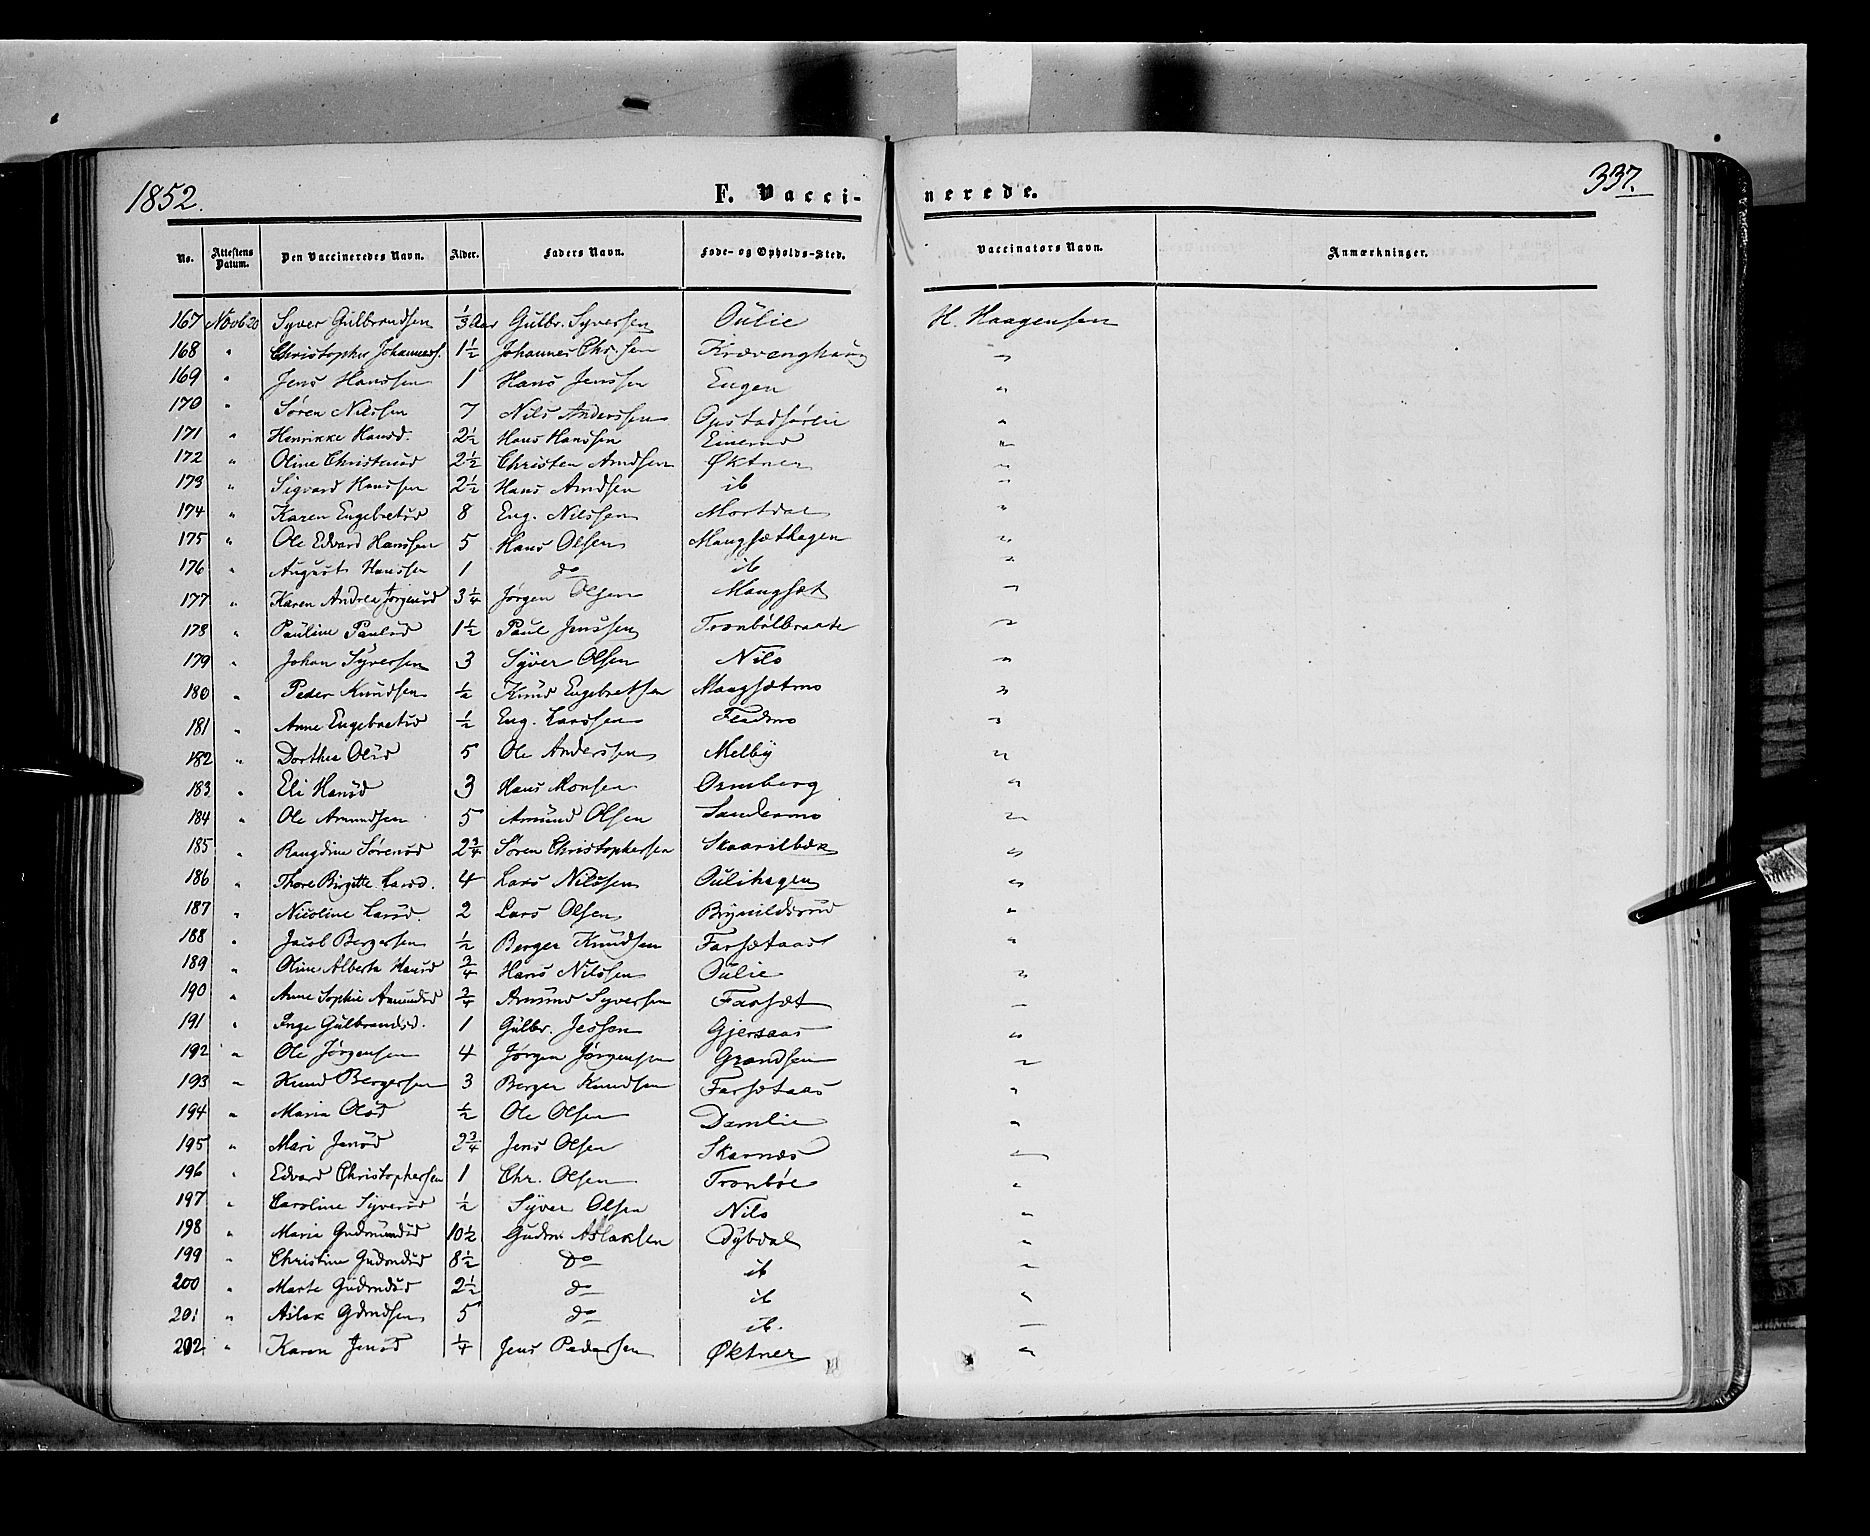 1852.
F. Vacci-
nerede.
337.
No. Attestens Datum. Den Vaccineredes Navn. Alder. Faders Navn. Føde- og Opholds-Sted. Vaccinators Navn. Anmærkninger.
167 Novb 20 Syver Gulbrandsen 1/3 Aar Gulbr. Syversen Oulie H. Haagensen
168 " Christopher Johanness. 1 1/2 Johannes Chr.sen "
169 " Jens Hanssen 1 Hans Jenssen Eugen "
170 " Søren Nilssen 7 Nils Anderssen Opstadsørlie "
171 " Henrikke Hansd. 2 1/2 Hans Hanssen "
172 " Oline Christensd 2 1/2 Christen Arndsen Øktner "
173 " Sigvard Hanssen 2 1/2 Hans Arndsen ib "
174 " Karen Engebretsd 8 Eng. Nilssen Mortdal "
175 " Ole Edvard Hanssen 5 Hans Olsen Mangsæthagen "
176 " August Hanssen 1 do ib "
177 " Karen Andrea Jørgensd 3 1/4 Jørgen Olsen Mangsæt "
178 " Pauline Paulsd 1 1/2 Paul Jenssen Tronbölbraate "
179 " Johan Syversen 3 Syver Olsen Nilo "
180 " Peder Knudsen 1/2 Knud Engebretsen Mangsætmo "
181 " Anne Engebretsd 1/2 Eng. Larssen Fladmo "
182 " Dorthea Olsd 5 Ole Anderssen Melby "
183 " Eli Hansd 3 Hans Monsen Ormberg "
184 " Ole Amundsen 5 Amund Olsen Sandermo "
185 " Rangdine Sørensd 2 3/4 Søren Christophersen Skaarilbæk "
186 " Thore Birgitte Larsd. 4 Lars Nilssen Oulihagen "
187 " Nicoline Larsd. 2 Lars Olsen Brynildsrud "
188 " Jacob Bergersen 1/2 Berger Knudsen Farsætaas "
189 " Oline Alberta Hansd 3/4 Hans Nilssen Oulie "
190 " Anne Sophie Amundsd 3/4 Amund Syversen Farsæt "
191 " Inge Gulbrandsd. 1 Gulbr. Jessen Gjersaas "
192 " Ole Jørgensen 4 Jørgen Jørgensen Grandsein "
193 " Knud Bergersen 3 Berger Knudsen Farsætaas "
194 " Maria Olsd 1/2 Ole Olsen Damlie "
195 " Mari Jensd 2 3/4 Jens Olsen Skarnæs "
196 " Edvard Christophersen 1 Chr. Olsen Tronböl "
197 " Caroline Syversd 1/2 Syver Olsen Nilo "
198 " Maria Gudmundsd 10 1/2 Gudm. Aslaksen Dybdal "
199 " Christine Gudmdsd 8 1/2 Do ib "
200 " Marte Gudmdsd 2 1/2 do ib "
201 " Aslak Gdmdsen 5 do ib. "
202 " Karen Jensd 1/4 Jens Pedersen Øktner "